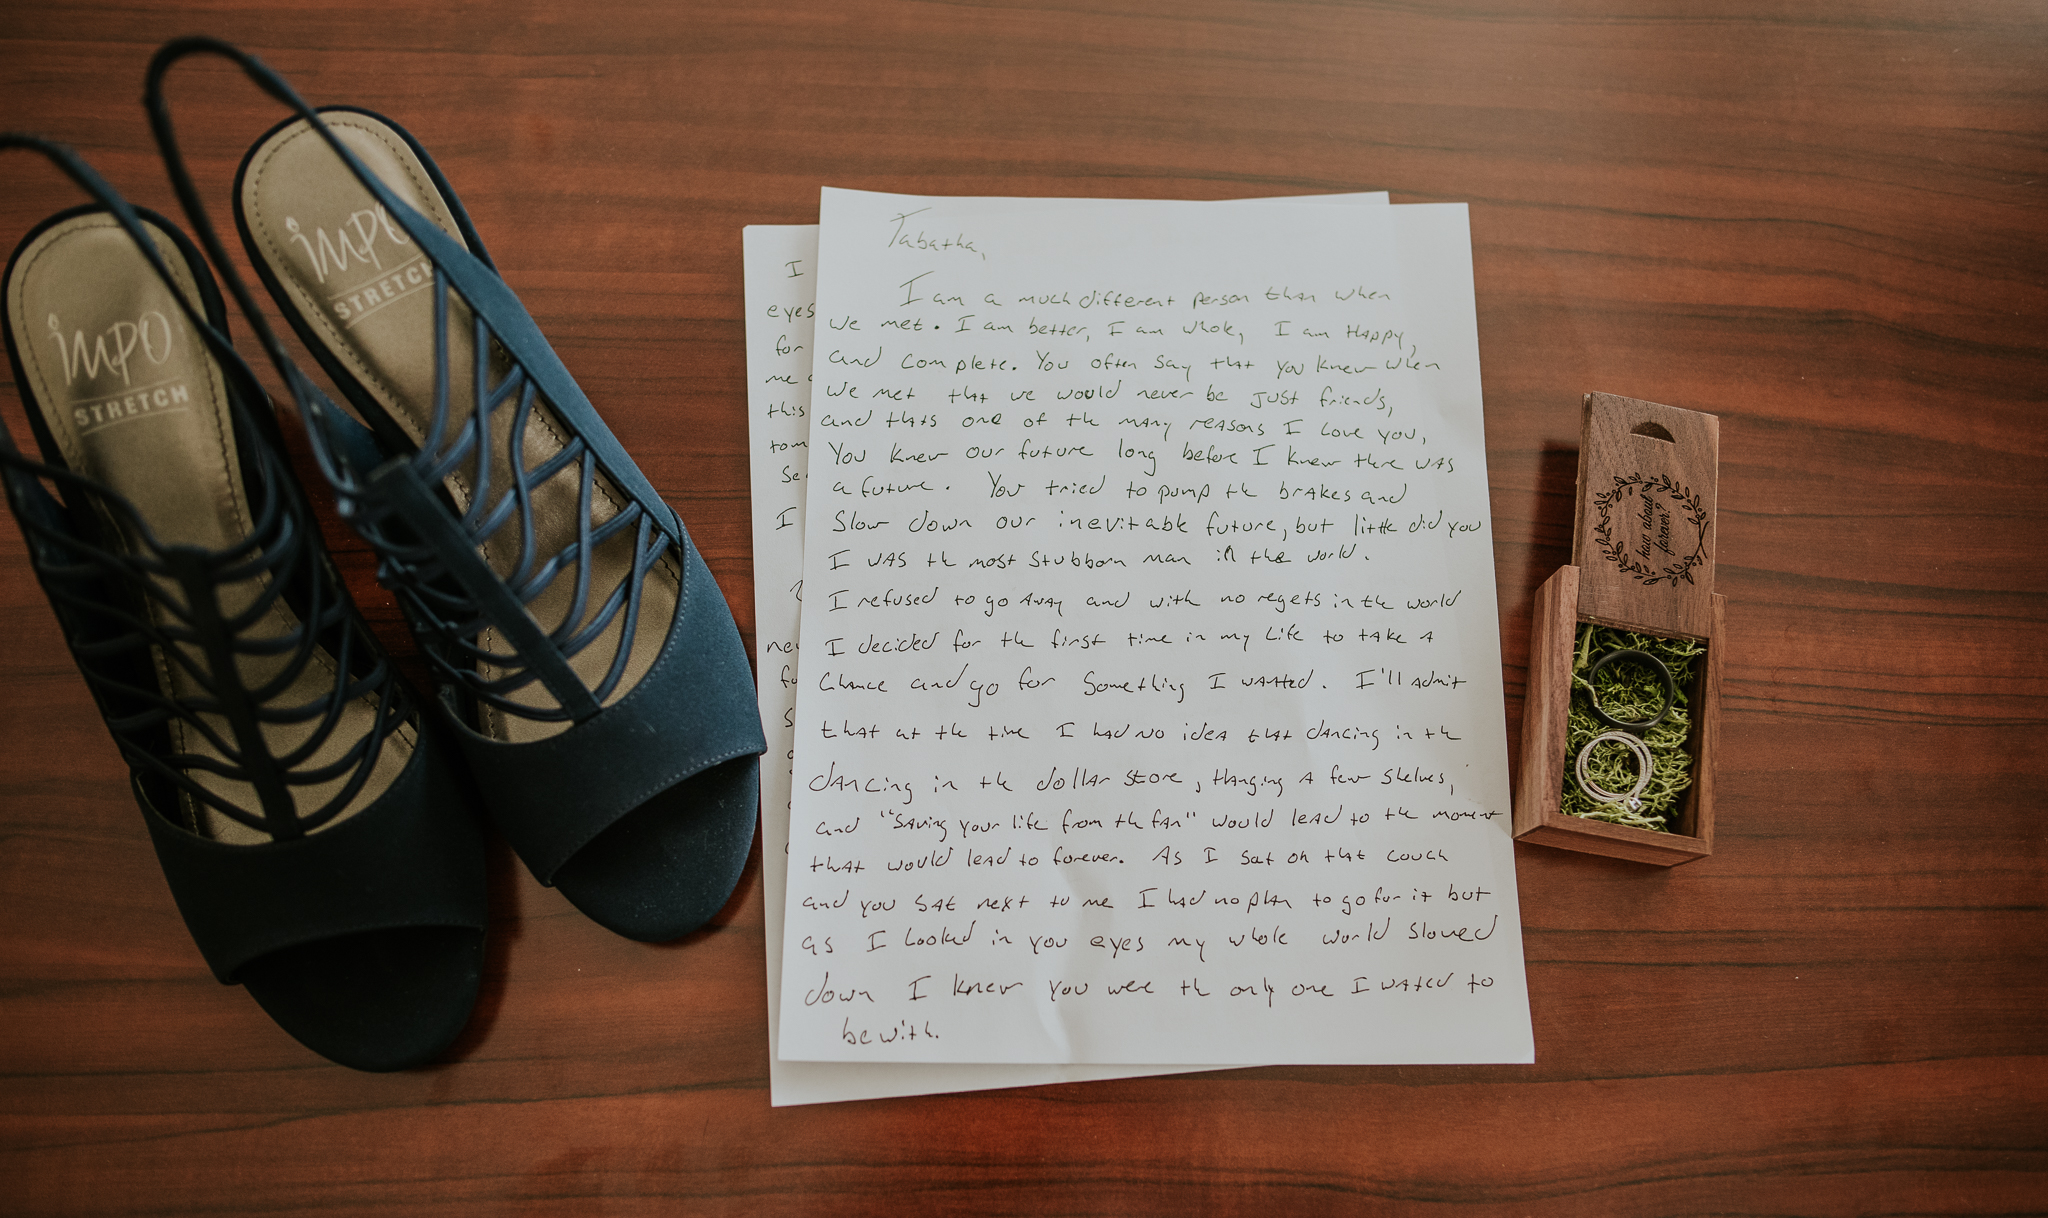 IMPO
STRETCH
IMPO
STRETCH
Tabatha,
I am a much different person than when
we met. I am better, I am whole, I am Happy,
and complete. You often say that you knew when
we met that we would never be just friends,
and thats one of the many reasons I love you,
You knew our future long before I knew there was
a future. You tried to pump the brakes and
Slow down our inevitable future, but little did you
I was the most stubborn man in the world.
I refused to go away and with no regets in the world
I decided for the first time in my life to take a
Chance and go for something I wanted. I'll admit
that at the time I had no idea that dancing in the
dancing in the dollar store, Hanging a few shelves,
and "saving your life from the fan" would lead to the moment
that would lead to forever. As I sat on that couch
and you sat next to me I had no plan to go for it but
as I looked in you eyes my whole world slowed
down I knew you were the only one I wated to
be with.
I
eyes
for
me
this
tom
Se
I
nev
fu
how about
forever?